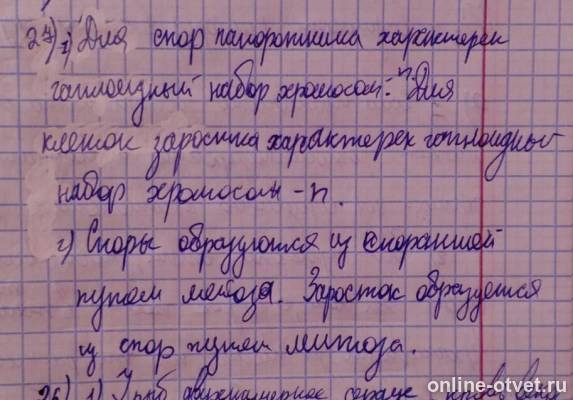 27) 1) Для спор папоротника характерен
гаплоидный набор хромосом: n. Для
клеток заростка характерен гаплоидный
набор хромосом - n.
2) Споры образуются из спорангий
путем мейоза. Заросток образуется
из спор путем митоза.
26) 1) У рыб двухкамерное сердце
online-otvet.ru